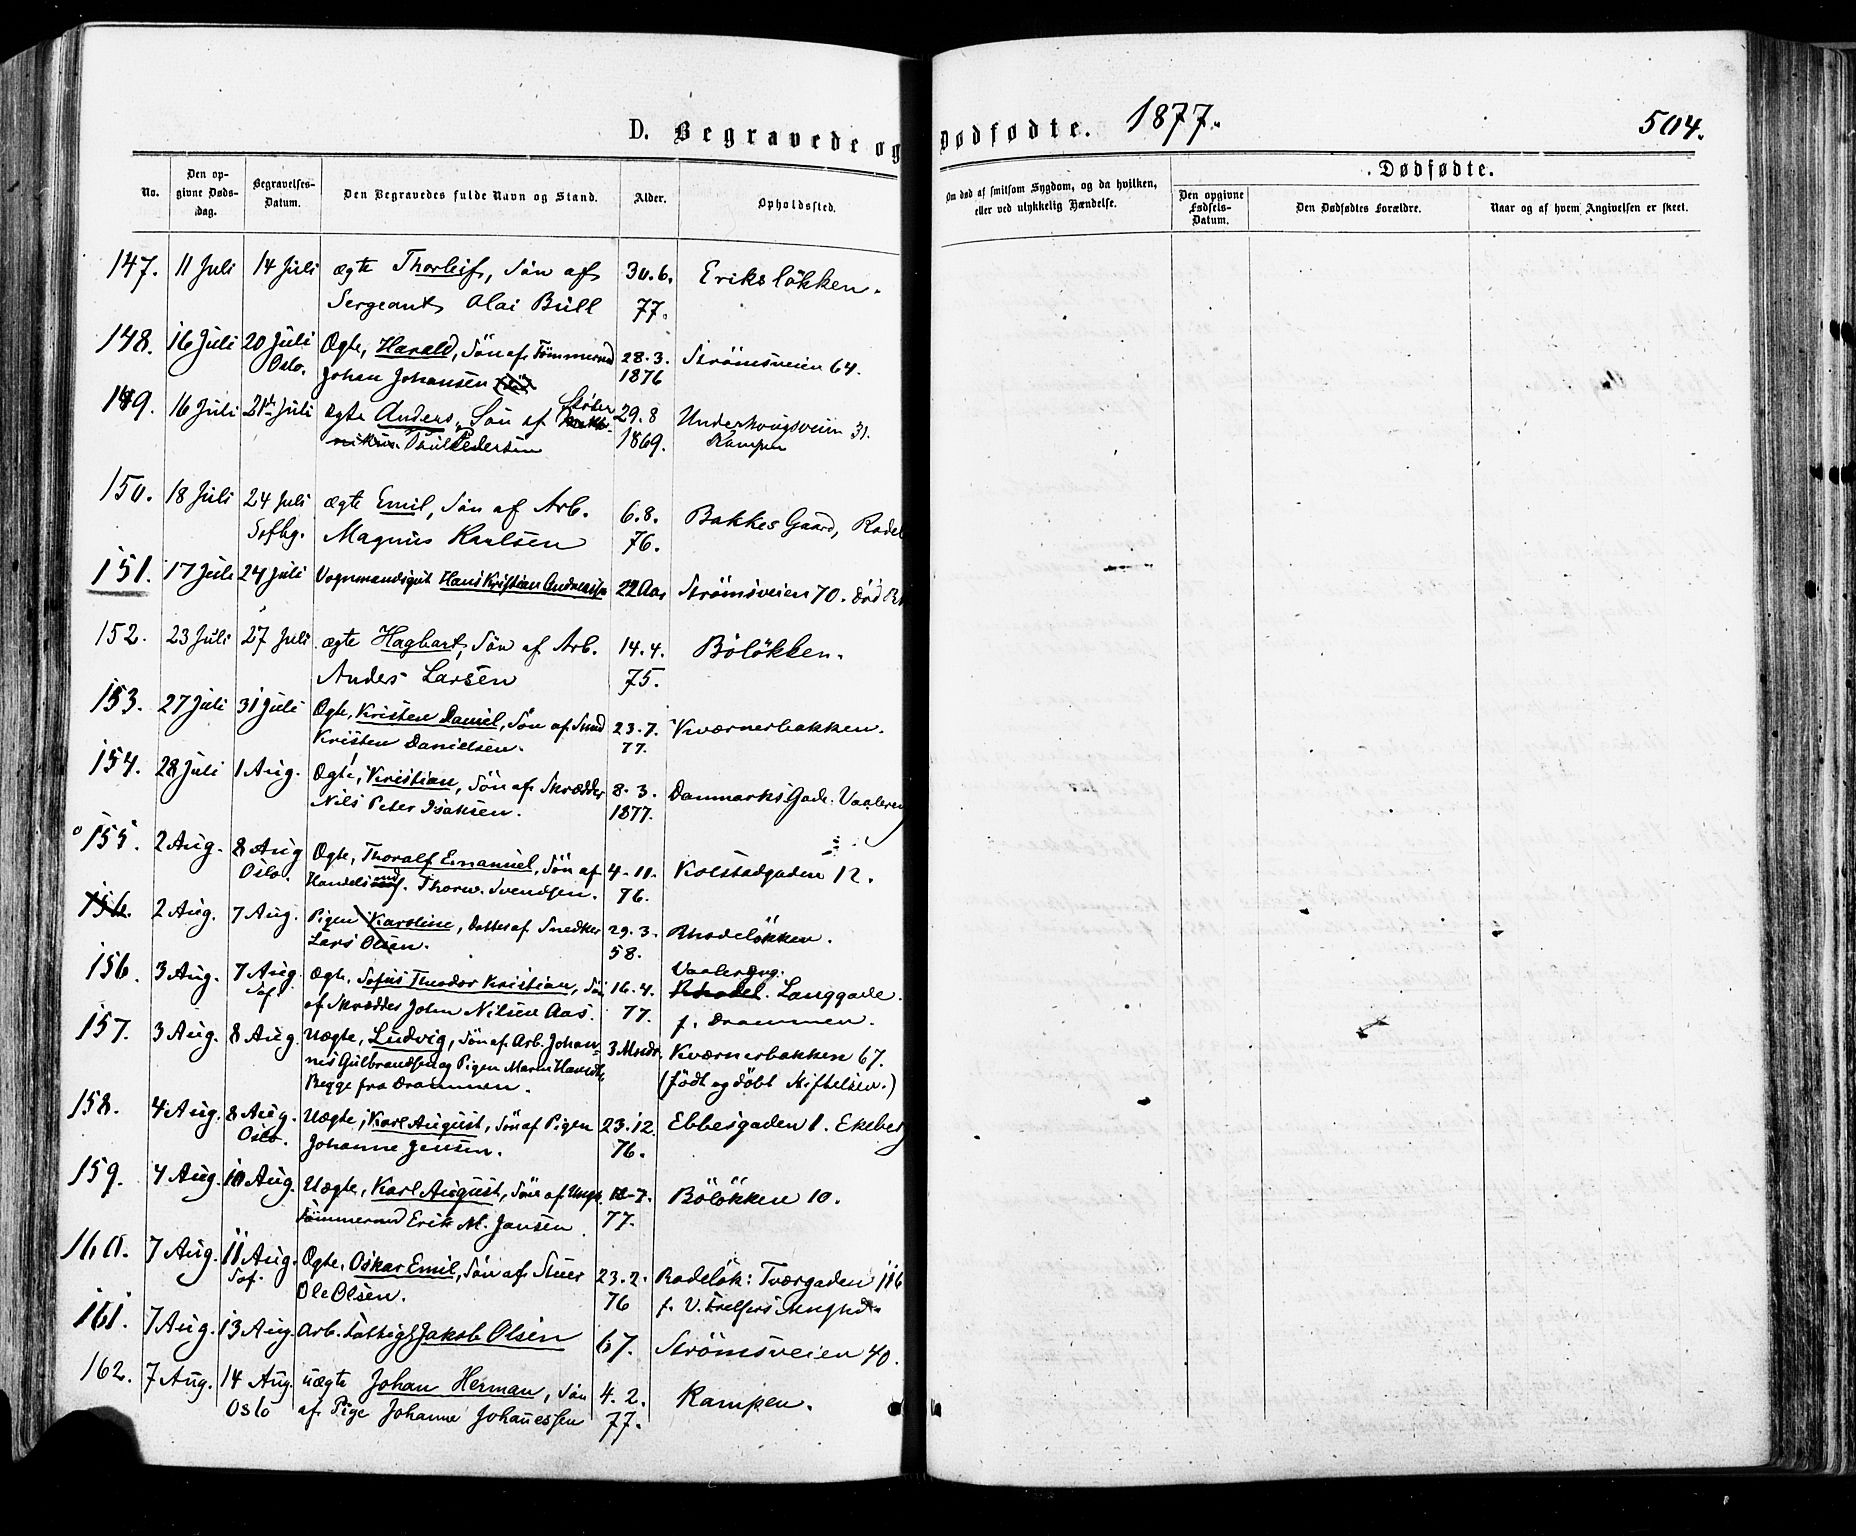 D. Begravede og Dødfødte. 1877. 504.
No. Den opgivne Døds-dag. Begravelses-Datum. Den Begravedes fulde Navn og Stand. Alder. Opholdssted. Om død af smitsom Sygdom, og da hvilken, eller ved ulykkelig Hændelse. Dødfødte. Den opgivne Fødsels-Datum. Den Dødfødtes Forældre. Naar og af hvem Angivelsen er skeet.
147. 11 Juli 14 Juli ægte Thorleif, Sön af 30.6. Erikslökken.
Sergeant Olai Bull 77.
148. 16 Juli 20 Juli Ægte, Harald, Sön af Tömmermd 28.3. Strömsveien 64.
Oslo. Johan Johansen 1876
149. 16 Juli 21de Juli ægte Anders, Sön af 29.8 Underhougsveien 31.
Paul Pedersen 1869. Kampen
150. 18 Juli 24 Juli ægte Emil, Sön af Arb. 6.8. Bakkes Gaard, Rodel
Sofbg. Magnus Karlsen 76.
151. 17 Juli 24 Juli Vognmandsgut Hans Kristian Andreassen 22 Aar Strömsveien 70. död
152. 23 Juli 27 Juli ægte Hagbart, Sön af Arb. 14.4. Bölökken.
Anders Larsen 75.
153. 27 Juli 31 Juli Ægte, Kristen Daniel, Sön af Smed 23.7. Kværnerbakken.
Kristen Danielsen. 77.
154. 28 Juli 1 Aug. Ægte, Kristian, Sön af Skrædder 8.3. Danmarks Gade. Vaaleren
Nils Peter Isaksen. 1877.
155. 2 Aug. 8 Aug Ægte, Thoralf Emanuel, Sön af 4.11. Kolstadgaden 12.
Oslo. Handels Thorw. Svendsen. 76.
156. 2 Aug. 7 Aug. Pigen Karoline, Datter af Snedker 29.3. Rhodelökken.
Lars Olsen. 58.
156. 3 Aug. 7 Aug. Ægte, Sofus Theodor Kristian, Sön 16.4. Vaalereng. Rhodel. Langgade.
Sof. af Skrædder John Nilsen Aas. 77. f. Drammen.
157. 3 Aug. 8 Aug. Uægte, Ludvig, Sön af Arb. Johan- 3 Mndr. Kværnerbakken 67.
nes Gulbrandsen og Pigen Maren (födt og döbt Stiftelsen.)
Begge fra Drammen.
158. 4 Aug. 8 Aug. Uægte, Karl August, Sön af Pigen 23.12. Ebbesgaden 1. Ekeberg
Oslo. Johanne Jensen. 76.
159. 4 Aug. 10 Aug. Uægte, Karl August, Sön af Ungk. 7. Bölökken 10.
Tömmermd Erik M. Jansen. 77.
160. 7 Aug. 11 Aug. Ægte, Oskar Emil, Sön af Stuer 23.2. Rodelök: Tværgaden 116
Sof. Ole Olsen. 76
161. 7 Aug. 13 Aug. Arb. Fattigl Jakob Olsen 67. Strömsveien 40.
162. 7 Aug. 14 Aug. uægte Johan Herman, Sön 4.2. Kampen.
Oslo af Pige Johanne Johannessen 77.